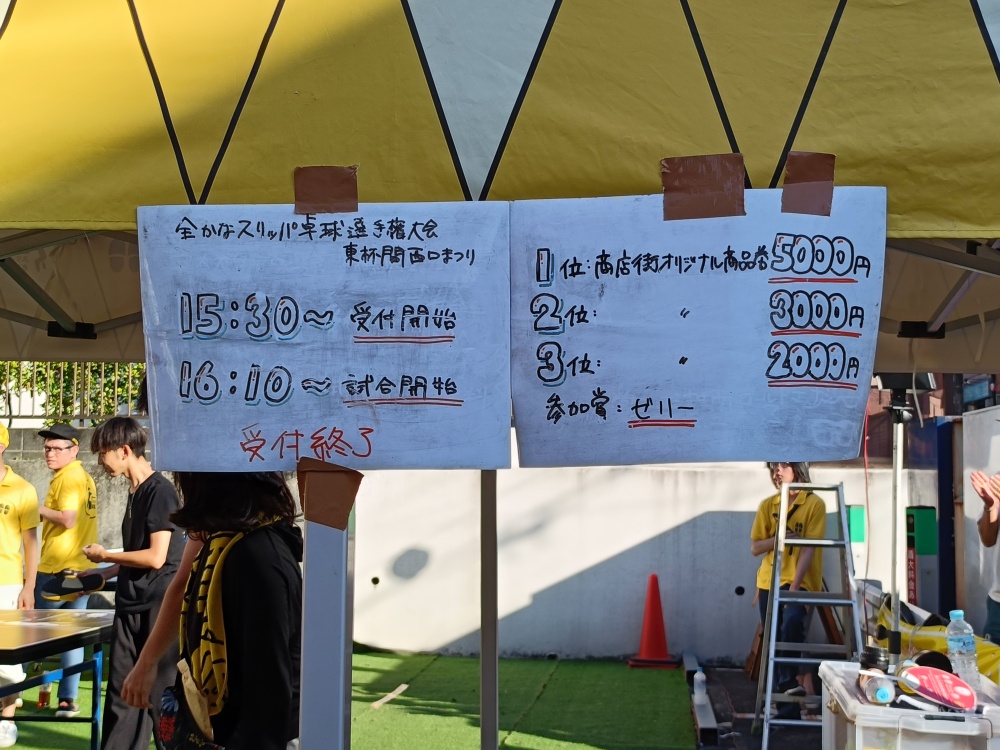 全かなスリッパ卓球選手権大会
東林間西口まつり
15:30〜 受付開始
16:10〜 試合開始
受付終了
1位:商店街オリジナル商品券5000円
2位: 〃 3000円
3位: 〃 2000円
参加賞:ゼリー